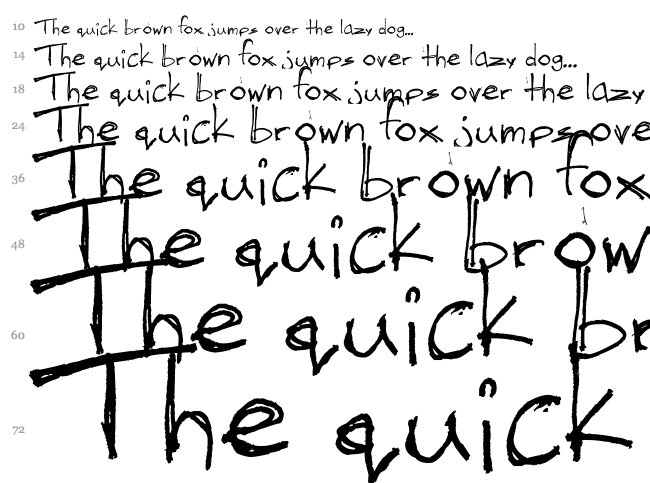 10 The quick brown fox jumps over the lazy dog...
14 The quick brown fox jumps over the lazy dog...
18 The quick brown fox jumps over the lazy
24 The quick brown fox jumps ove
36 The quick brown fox
48 The quick brow
60 The quick br
72 The quick